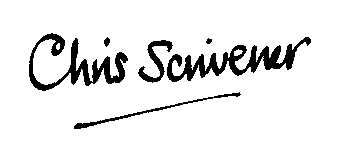 Chris Scrivener